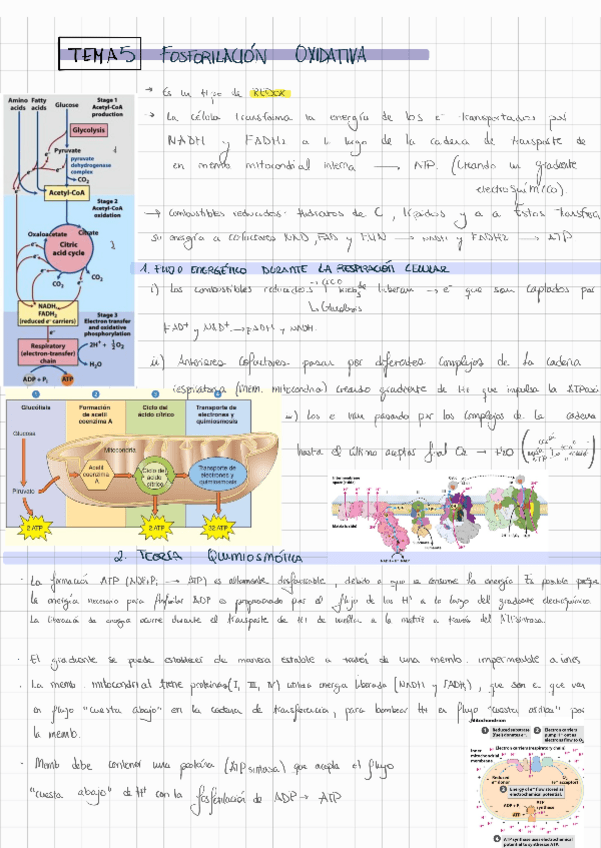 TEMA 5 FOSFORILACIÓN OXIDATIVA
→ Es un tipo de REDOX
→ La célula transforma la energía de los e⁻ transportados por
NADH y FADH2 a lo largo de la cadena de transporte de
en memb mitocondrial interna → ATP. (Creando un gradiente
electroquímico).
→ Combustibles reducidos: Hidratos de C, lípidos y a a Estos
su energía a cofactores NAD, FAD y FMN → NADH y FADH2 → ATP
Amino acids
Fatty acids
Glucose
Stage 1
Acetyl-CoA
production
Glycolysis
Pyruvate
pyruvate
dehydrogenase
complex
CO₂
Acetyl-CoA
Stage 2
Acetyl-CoA
oxidation
Oxaloacetate
Citrate
Citric
acid cycle
CO₂
CO₂
NADH,
FADH₂
(reduced e⁻ carriers)
Stage 3
Electron transfer
and oxidative
phosphorylation
2H⁺ + ½O₂
Respiratory
(electron-transfer)
chain
H₂O
ADP + Pᵢ
ATP
1. FLUJO ENERGÉTICO DURANTE LA RESPIRACIÓN CELULAR
i) Los combustibles reducidos liberan → e⁻ que son captados por
Glucólisis
FAD⁺ y NAD⁺ → FADH y NADH.
ii) Anteriores cofactores pasan por diferentes complejos de la cadena
respiratoria (Mem. mitocondria) creando gradiente de H⁺ que impulsa la ATPasa
los e van pasando por los complejos de la cadena
hasta el último aceptor final O₂ → H₂O
1 2 3 4
Glucólisis
Formación
de acetil
coenzima A
Ciclo del
ácido cítrico
Transporte de
electrones y
quimiosmosis
Glucosa
Mitocondria
Piruvato
Acetil
coenzima
A
Ciclo del
ácido
cítrico
Transporte de
electrones y
quimiosmosis
2 ATP
2 ATP
32 ATP
2. TEORÍA QUIMIOSMÓTICA
· La formación ATP (ADP+Pi → ATP) es altamente desfavorable, debido a que se consume la energía. Es posible porque
la energía necesaria para fosforilar ADP es proporcionada por el flujo de los H⁺ a lo largo del gradiente electroquímico.
La liberación de energía ocurre durante el transporte de H⁺ de vuelta a la matriz a través del ATPsintasa.
· El gradiente se puede establecer de manera estable a través de una memb. impermeable a iones
· La memb. mitocondrial tiene proteínas (I, III, IV) utiliza energía liberada (NADH y FADH₂), que son e⁻ que van
en flujo "cuesta abajo" en la cadena de transferencia, para bombear H⁺ en flujo "cuesta arriba" por
la memb.
· Memb debe contener una proteína (ATP sintasa) que acopla el flujo
"cuesta abajo" de H⁺ con la fosforilación de ADP → ATP
Mitochondrion
1 Reduced substrate
2 Electron carriers
Electron carriers (respiratory chain)
Inner
mitochondrial
membrane
Reduced
e⁻ donor
3 Energy of e⁻ flow stored as
electrochemical potential.
ADP + Pᵢ
ATP
ATP
synthase
4 ATP synthase uses electrochemical
potential to synthesize ATP.